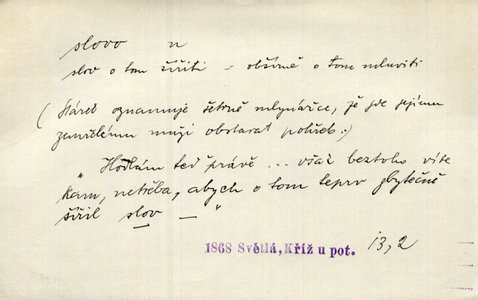 slovo n
slov o tom šířiti – obšírně o tom mluviti
( Mareš oznamuje šetrně mlynářce, že jde jejímu
zemřelému muži obstarat pohřeb.)
„ Hodlám teď právě ... však beztoho víte
kam, netřeba, abych o tom teprv zbytečně
šířil slov — "
1868 Světlá, Kříž u pot. 13,2